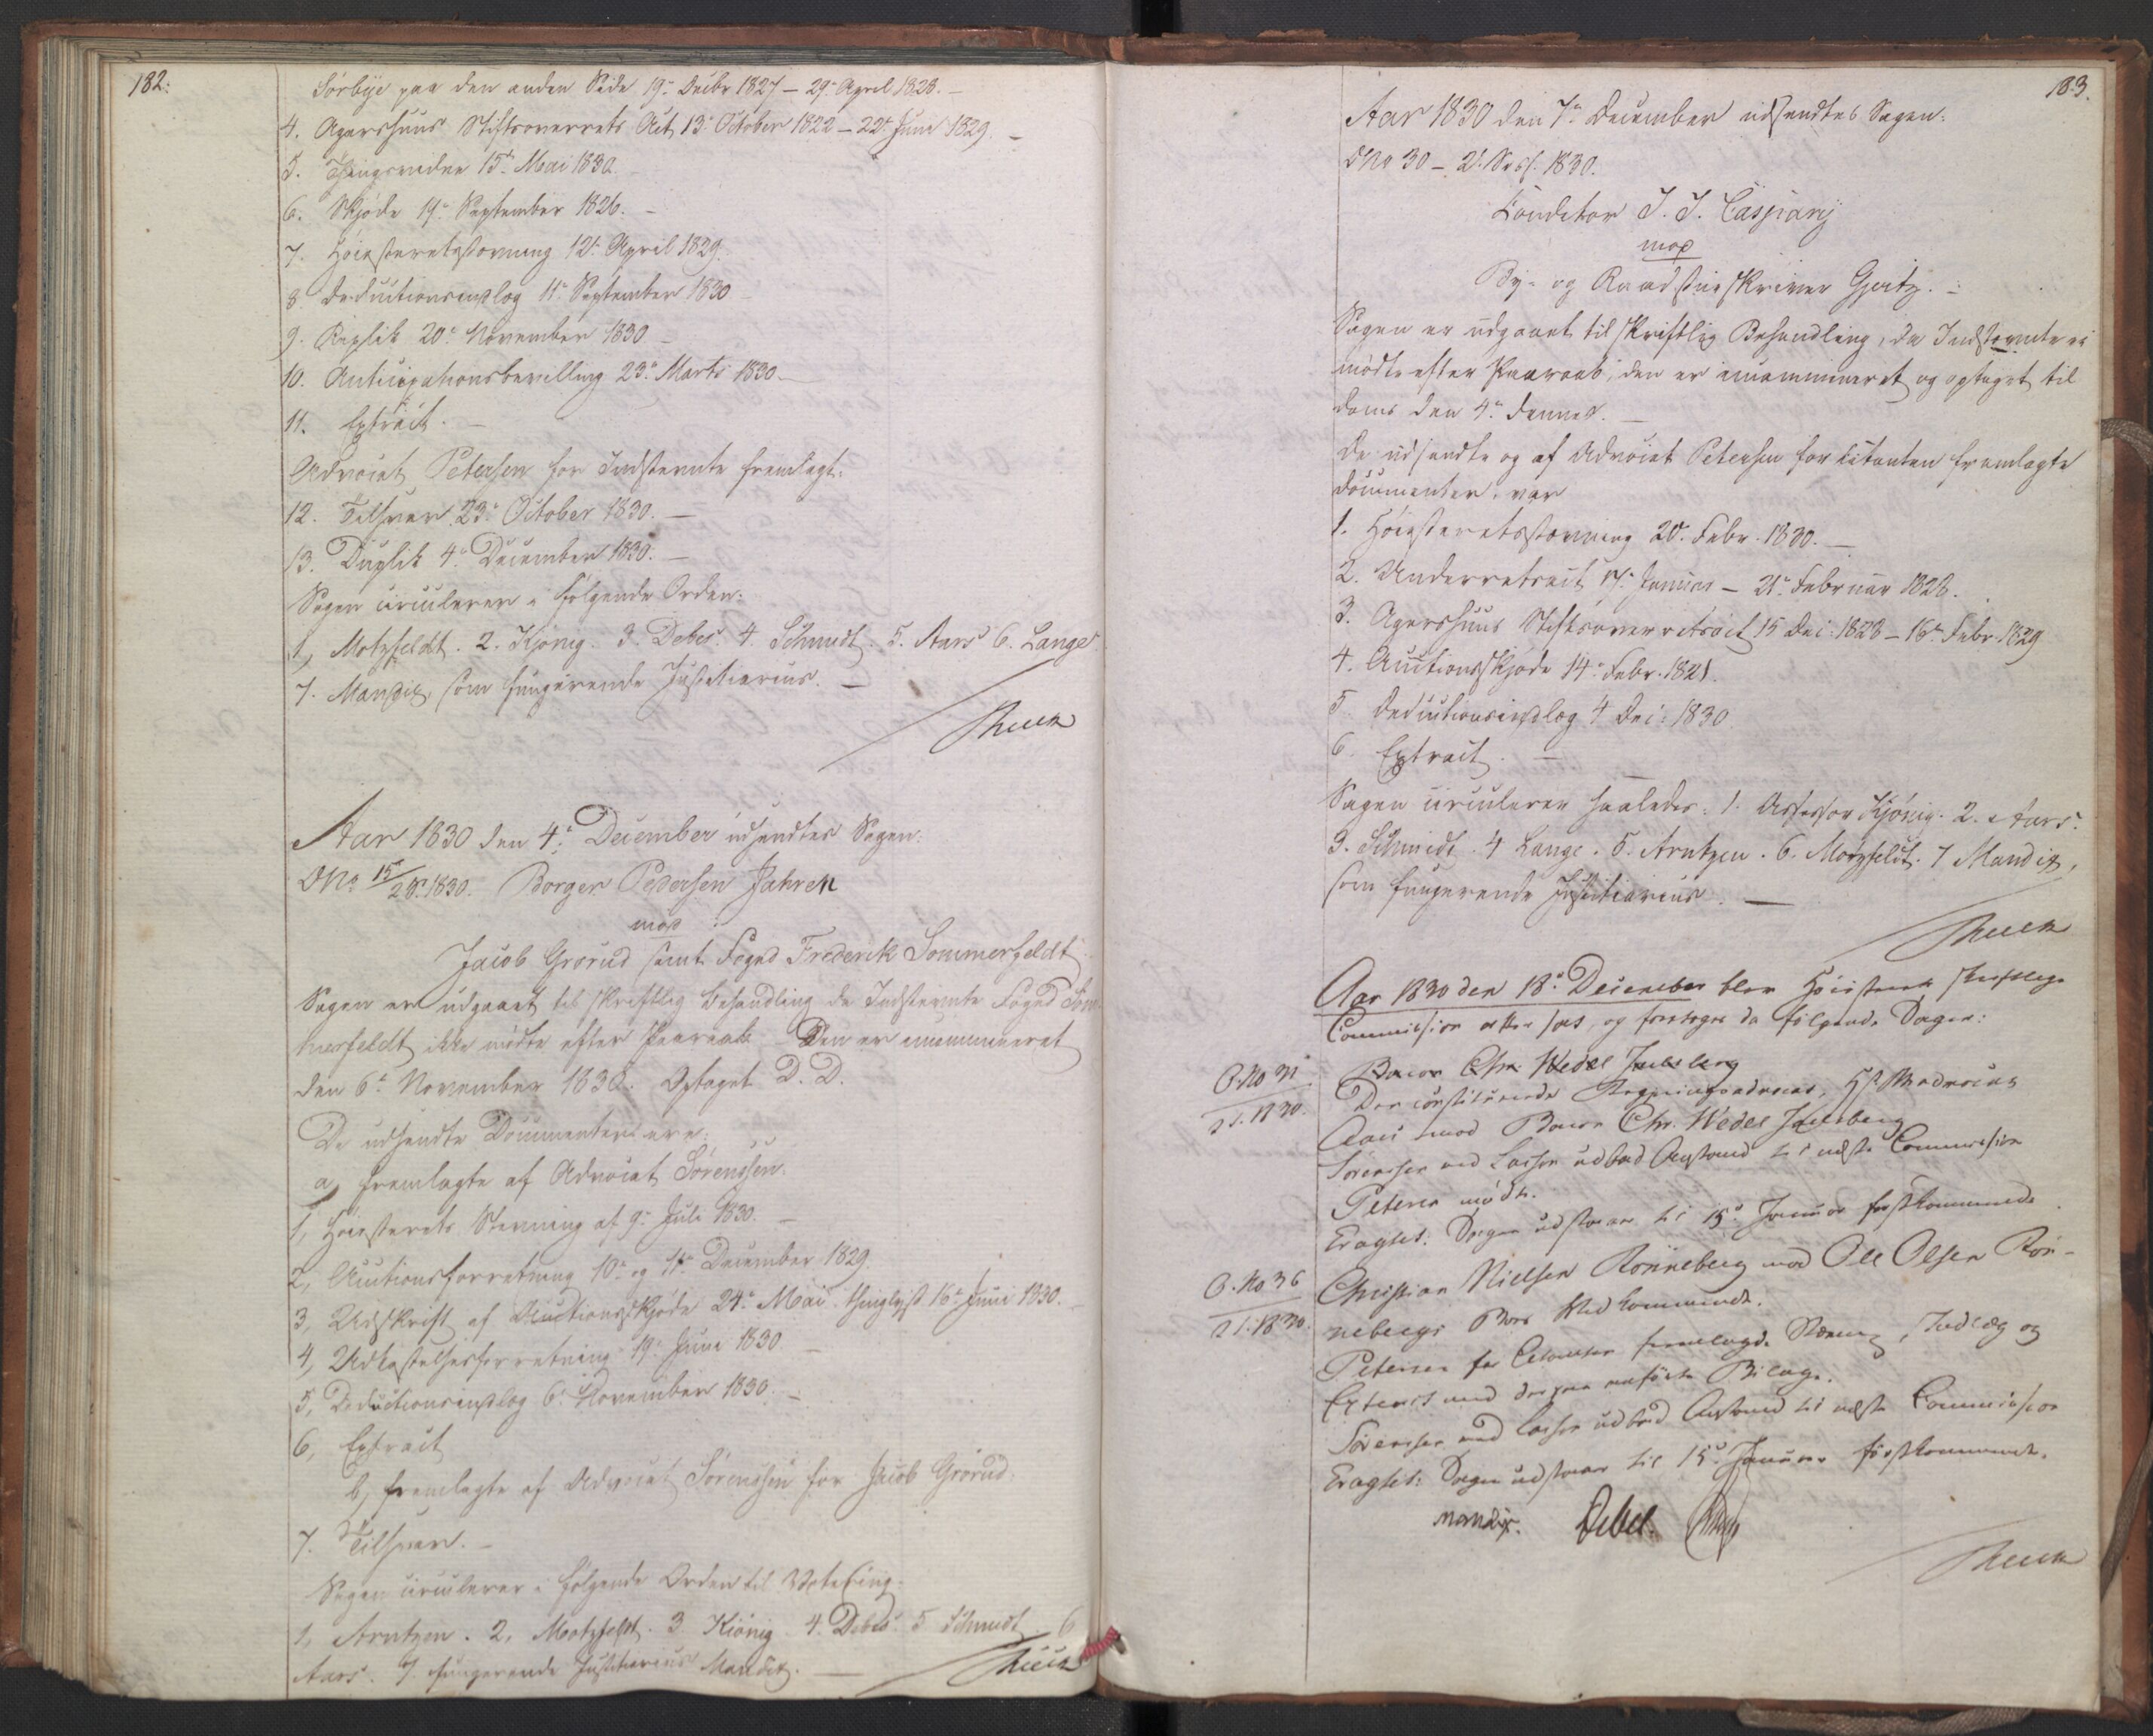 182.
Sörbye paa den anden Side 19de Decbr 1827 – 29de April 1828. –
4. Agershuus Stiftsoverrets Act, 13de October 1822 – 22de Juni 1829. –
5. Thingsvidne 15de Mai 1830. –
6. Skjøde 19de September 1826. –
7. Høiesteretsstevning 12te April 1829.
8. Deductionsindlæg 11te September 1830 –
9. Replik 20de November 1830 –
10. Anticipationsbevilling 23de Marts 1830 –
11. Extract. –
Advocat Petersen for Indstevnte fremlagt:
12. Tilsvar 23de October 1830. –
13. Duplik 4de December 1830. –
Sagen circulerer i følgende Orden:
1, Motzfeldt. 2. Kjönig. 3. Debes. 4. Schmidt. 5. Aars 6. Lange
7. Mandix, som fungerende Justitiarius. –
Aar 1830 den 4de December udsendtes Sagen:
No 15/2 S. 1830. Borger Pedersen Jahren
mod
Jacob Grorud samt Foged Frederik Sommerfeldt
Sagen er udgaaet til skriftlig Behandling da Indstevnte Foged Som
merfeldt ikke mødte efter Paaraab. Den er incamineret
den 6te November 1830. Optaget D. D.
De udsendte Documenter ere:
a, fremlagte af Advocat Sörenssen.
1, Høiesterets Stevning af 9de Juli 1830. –
2, Auctionsforretning 10de og 11te December 1829.
3, Udskrift af Auctionsskjøde 24de Mai thinglyst 16de Juni 1830.
4, Udkastelsesforretning 19de Juni 1830 –
5, Deductionsindlæg 6te November 1830. –
6, Extract
b, fremlagte af Advocat Sörenssen for Jacob Grorud.
7. Tilsvar. –
Sagen circulerer i følgende Orden til Votering:
1, Arntzen. 2, Motzfeldt. 3 Kiönig 4. Debes. 5 Schmidt 6
Aars. 7. fungerende Justitiarius Mandix. –
183.
Aar 1830 den 7de December udsendtes Sagen:
No 30 – 2d. Sess. 1830.
Conditor J. J. Caspary
mod
By- og Raadstueskriver Gjertz. –
Sagen er udgaaet til skriftlig Behandling, da Indstevnte ei
mødte efter Paaraab; den er incamineret og optaget til
Doms den 4de dennes. –
De udsendte og af Advocat Petersen for Citanten fremlagte
Documenter, var
1. Høiesteretsstevning 20de Febr. 1830. –
2. Underretsact 17de Januar – 21de Februar 1828.
3. Agershuus Stiftsoverretsact 15 Dec: 1828 – 16de Febr. 1829
4. Auctionsskjøde 14de Febr. 1821.
5 Deductionsindlæg 4 Dec: 1830
6. Extract. –
Sagen circulerer saaledes: 1. Assessor Kjönig. 2. Aars.
3. Schmidt. 4 Lange. 5. Arntzen. 6. Motzfeldt. 7 Mandix,
som fungerende Justitiarius. –
Aar 1830 den 18de December blev Høiesterets skriftlige
Commission sat, og foretoges da følgende Sager:
O. No 31
2 S. 1830.
Baron Chr. Wedel Jarlsberg
Den constituerede Regjeringsadvocat,
mod Baron Chr. Wedel Jarlsberg
Sörenssen ved Lasson udbad Anstand til næste Commission
Petersen mødte.
Eragtet: Sagen udstaaer til 15de Januar førstkommende.
O. No 36
2 S. 1830.
Christian Nielsen Rönneberg mod Ole Olsen Rön-
nebergs Boes Vedkommende.
Petersen for Citanten fremlagde Stevning, Indlæg og
Extract med derpaa anførte Bilage.
Sörenssen ved Lasson udbad Anstand til næste Commission
Eragtet: Sagen udstaaer til 15de Januar førstkommende.
Mandix. Debes.